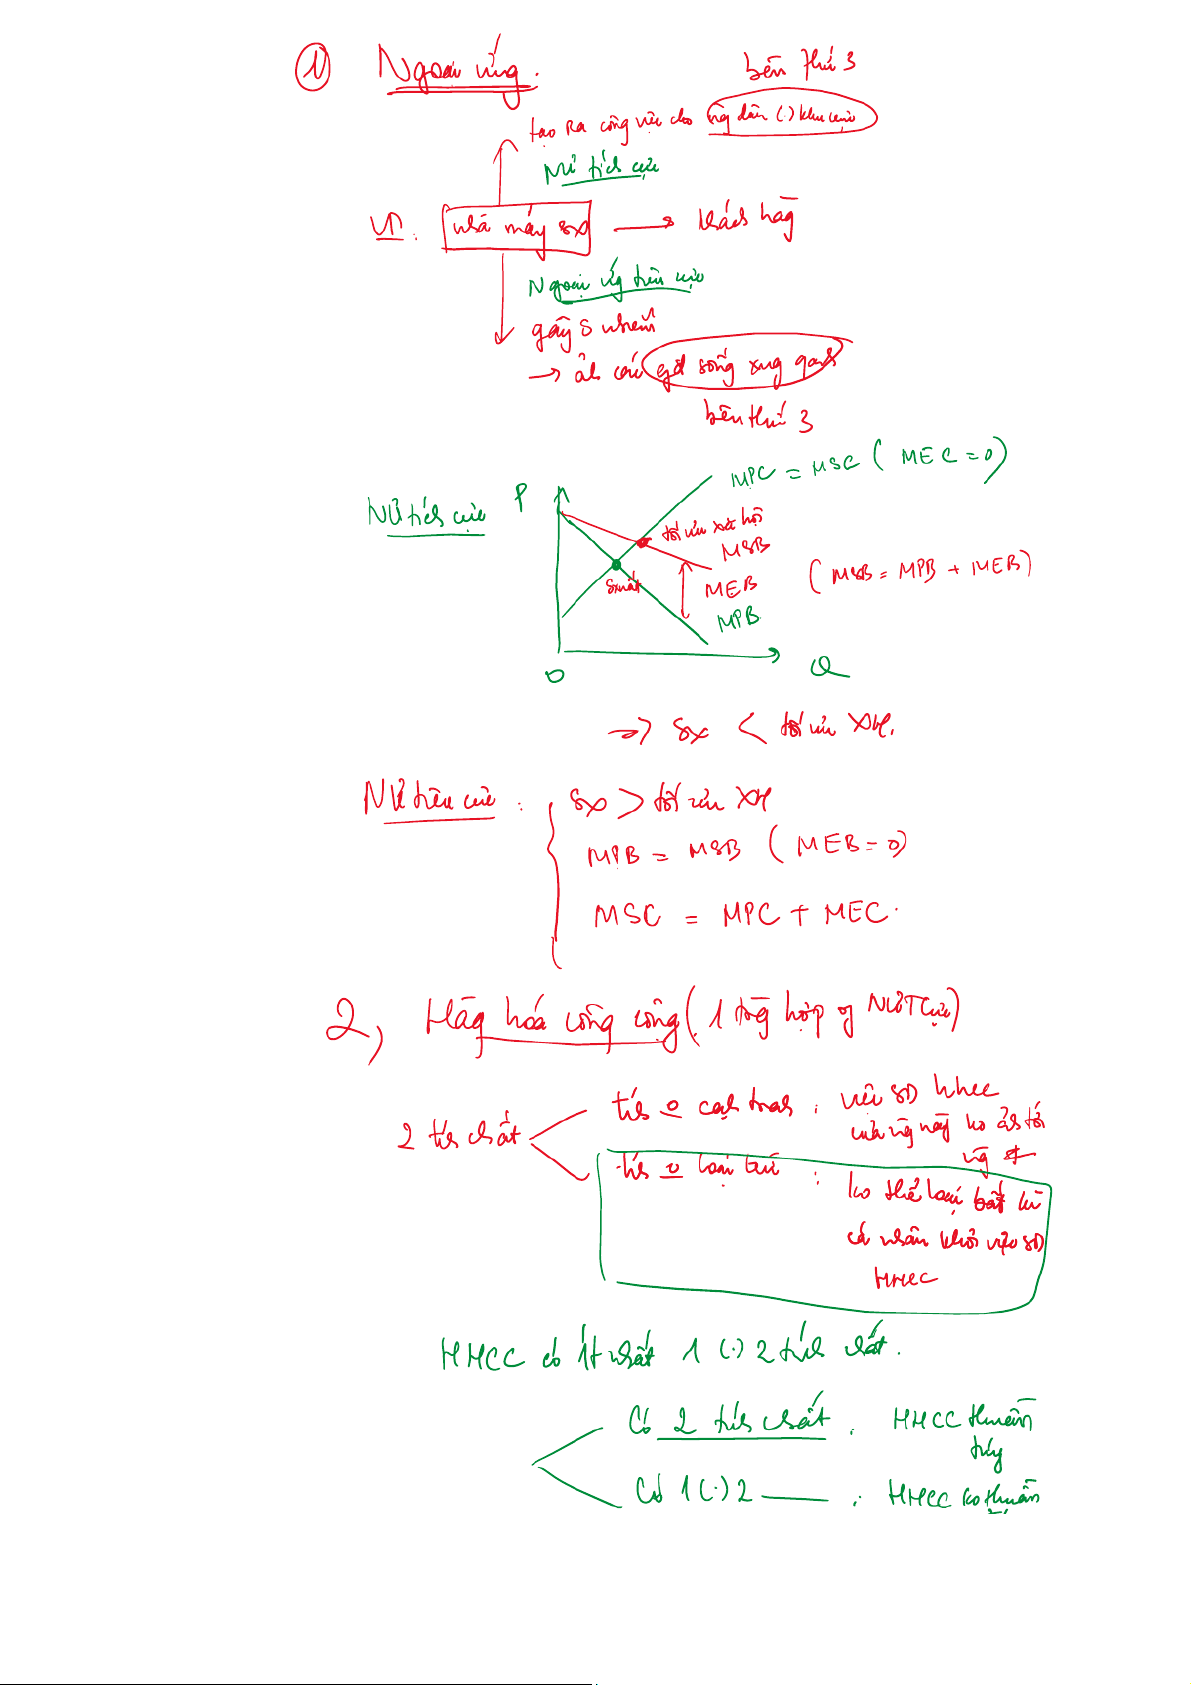 ① Ngoại ứng.
bên thứ 3
tạo ra công việc cho ng dân (.) khu vực
NƯ tích cực
VD: nhà máy sx → khách hàg
Ngoại ứg tiêu cực
gây ô nhiễm
→ ả/h cới gđ sống xug qanh
bên thứ 3
NƯ tích cực
P
MPC = MSC (MEC = 0)
tối ưu xã hội
MSB
(MSB = MPB + MEB)
MEB
MPB
O
Q
→ sx < tối ưu XH.
NƯ tiêu cực: sx > tối ưu XH
MPB = MSB (MEB = 0)
MSC = MPC + MEC.
2, Hàg hoá công cộng (1 trg hợp of NƯTCực)
2 t/c chất
tíh 0 cạh trah: việc SD HHCC
của ng này ko ảh tới
ng ≠
tíh 0 loại trừ: ko thể loại bất kì
cá nhân khỏi việc SD
HHCC
HHCC có ít nhất 1 (.) 2 tính chất.
Có 2 tíh chất: HHCC thuần
túy
Có 1 (.) 2 —: HHCC ko thuần